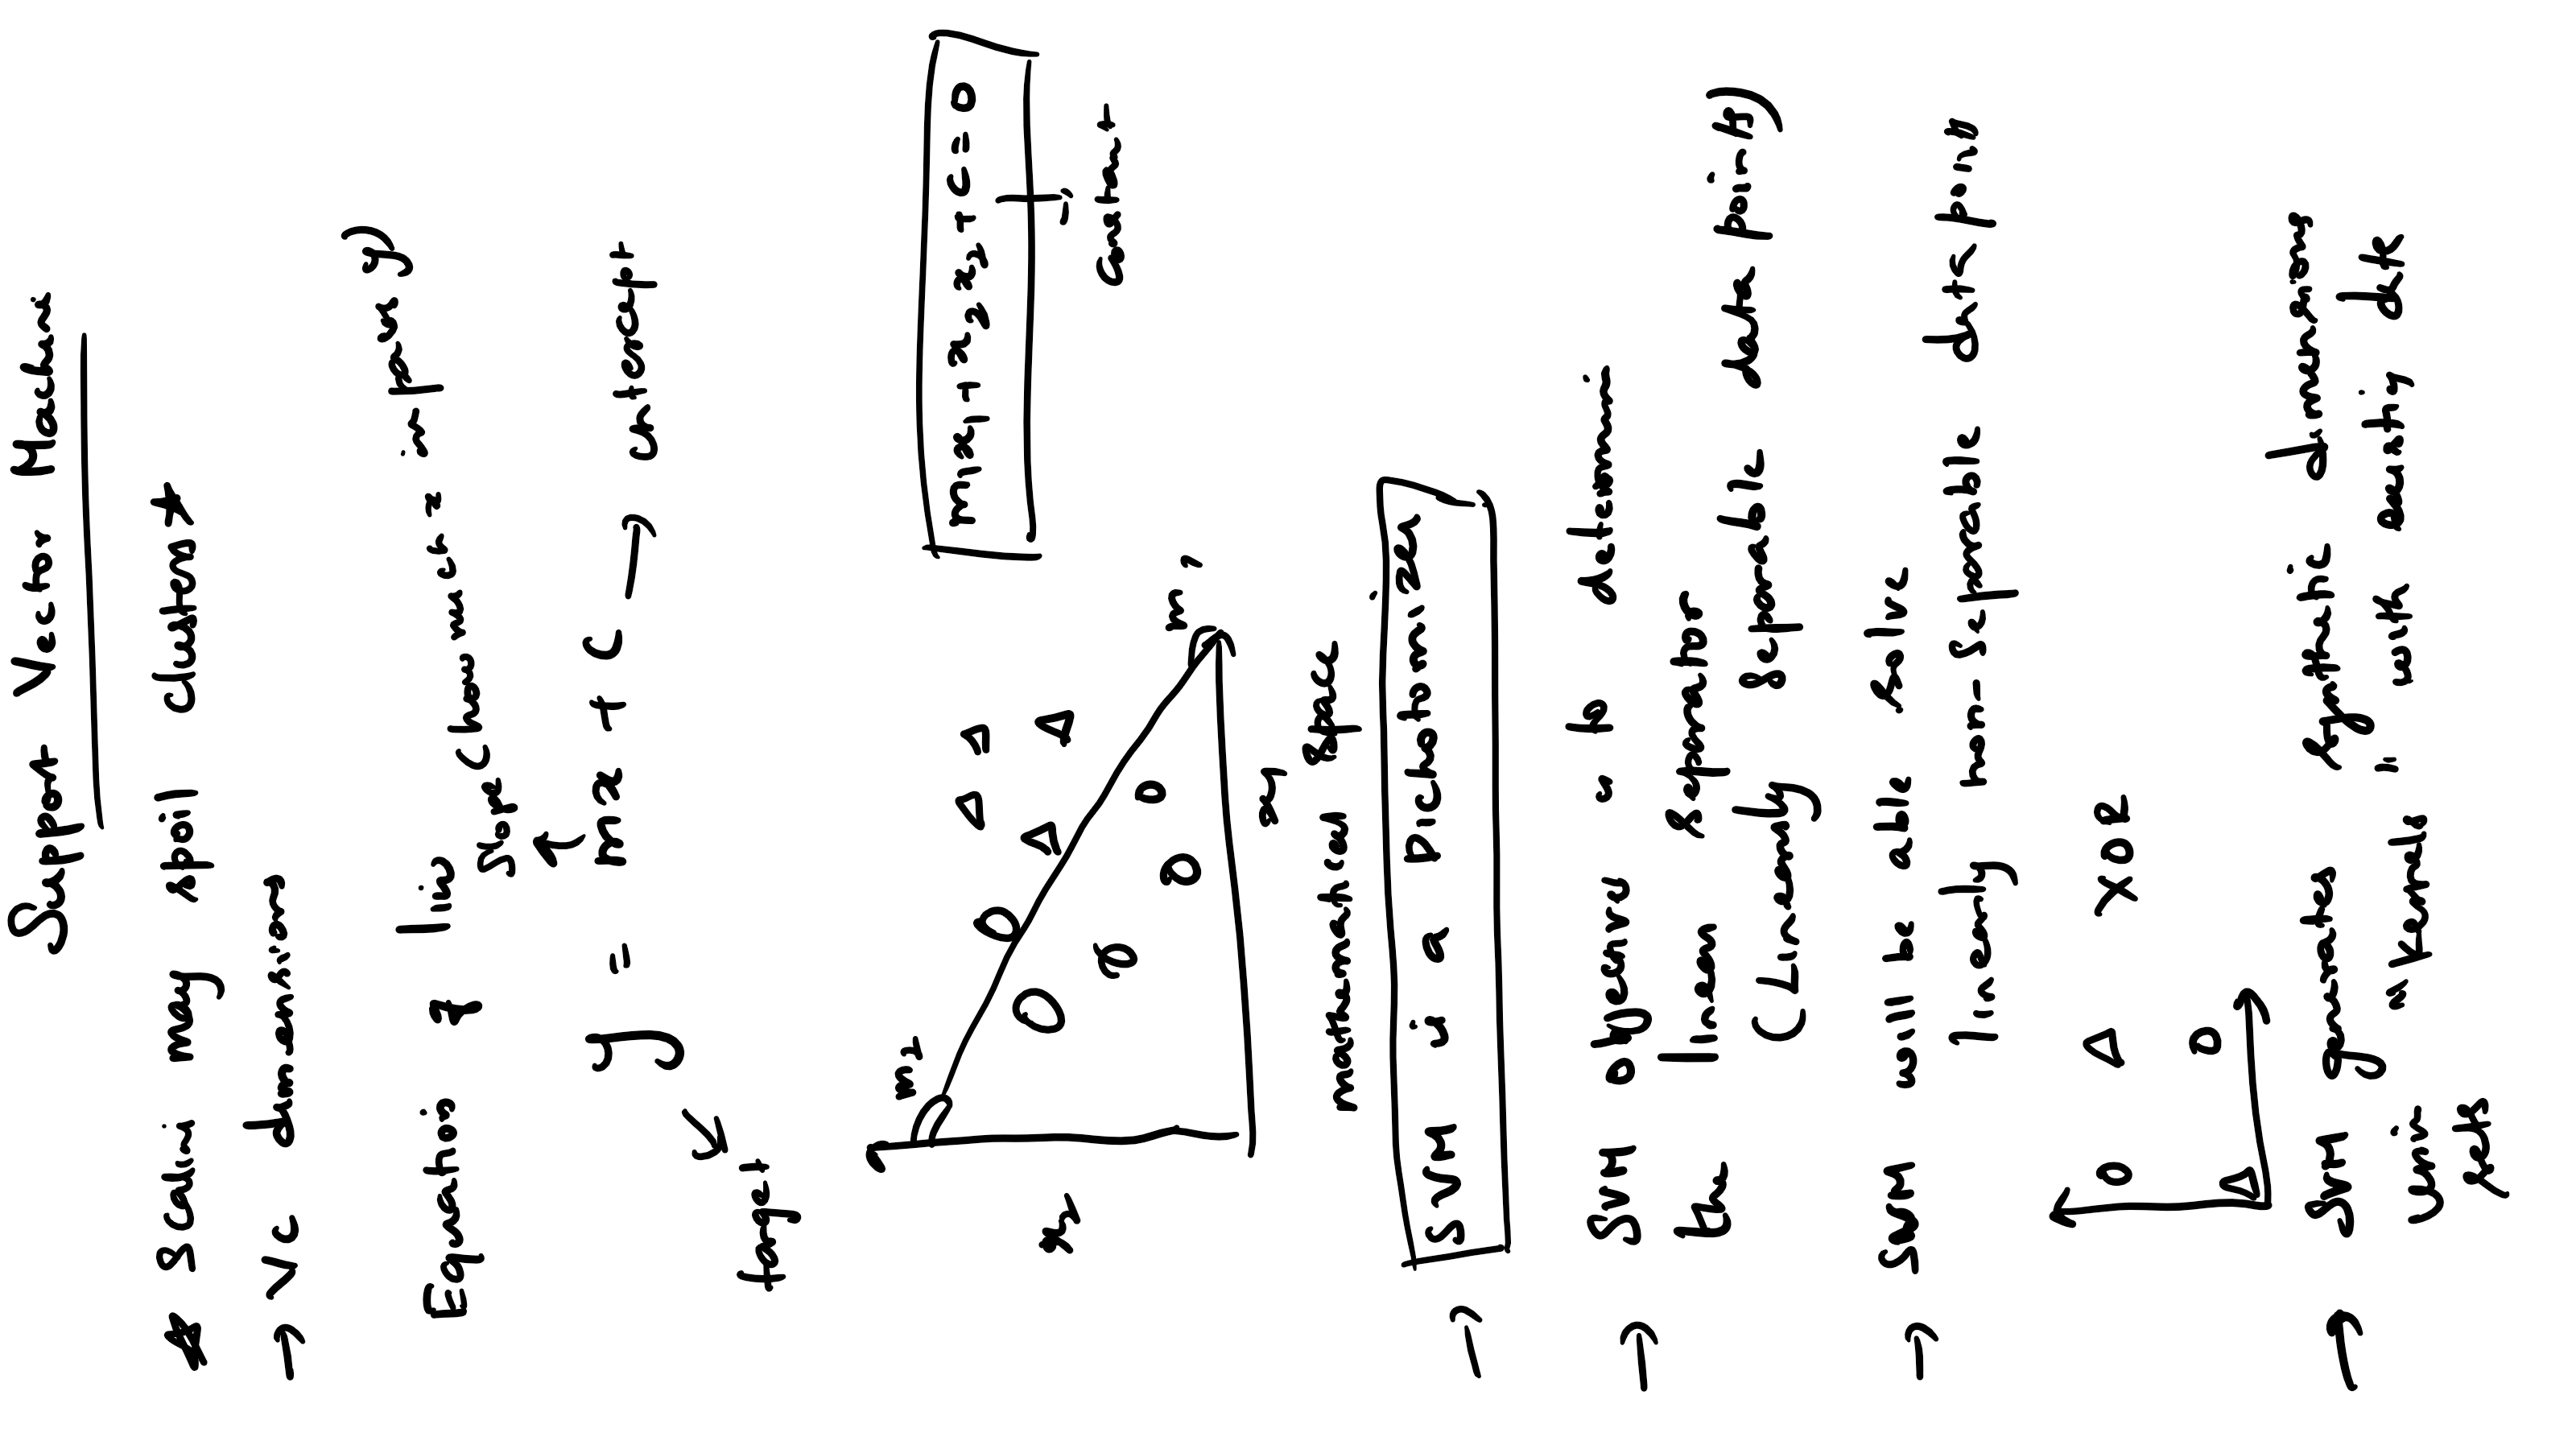 Support Vector Machine
* Scaling may spoil clusters *
→ VC dimensions
Equation of line
Slope (how much x impacts y)
y = mx + C → intercept
target
m2
x2
m1
x1
m1x1 + x2x2 + C = 0
Constant
mathematical space
→ SVM is a Dichotomizer
→ SVM objective is to determine
the linear separator
(Linearly separable data points)
→ SVM will be able solve
linearly non-separable data points
XOR
→ SVM generates synthetic dimensions
using "Kernels" with existing data
sets